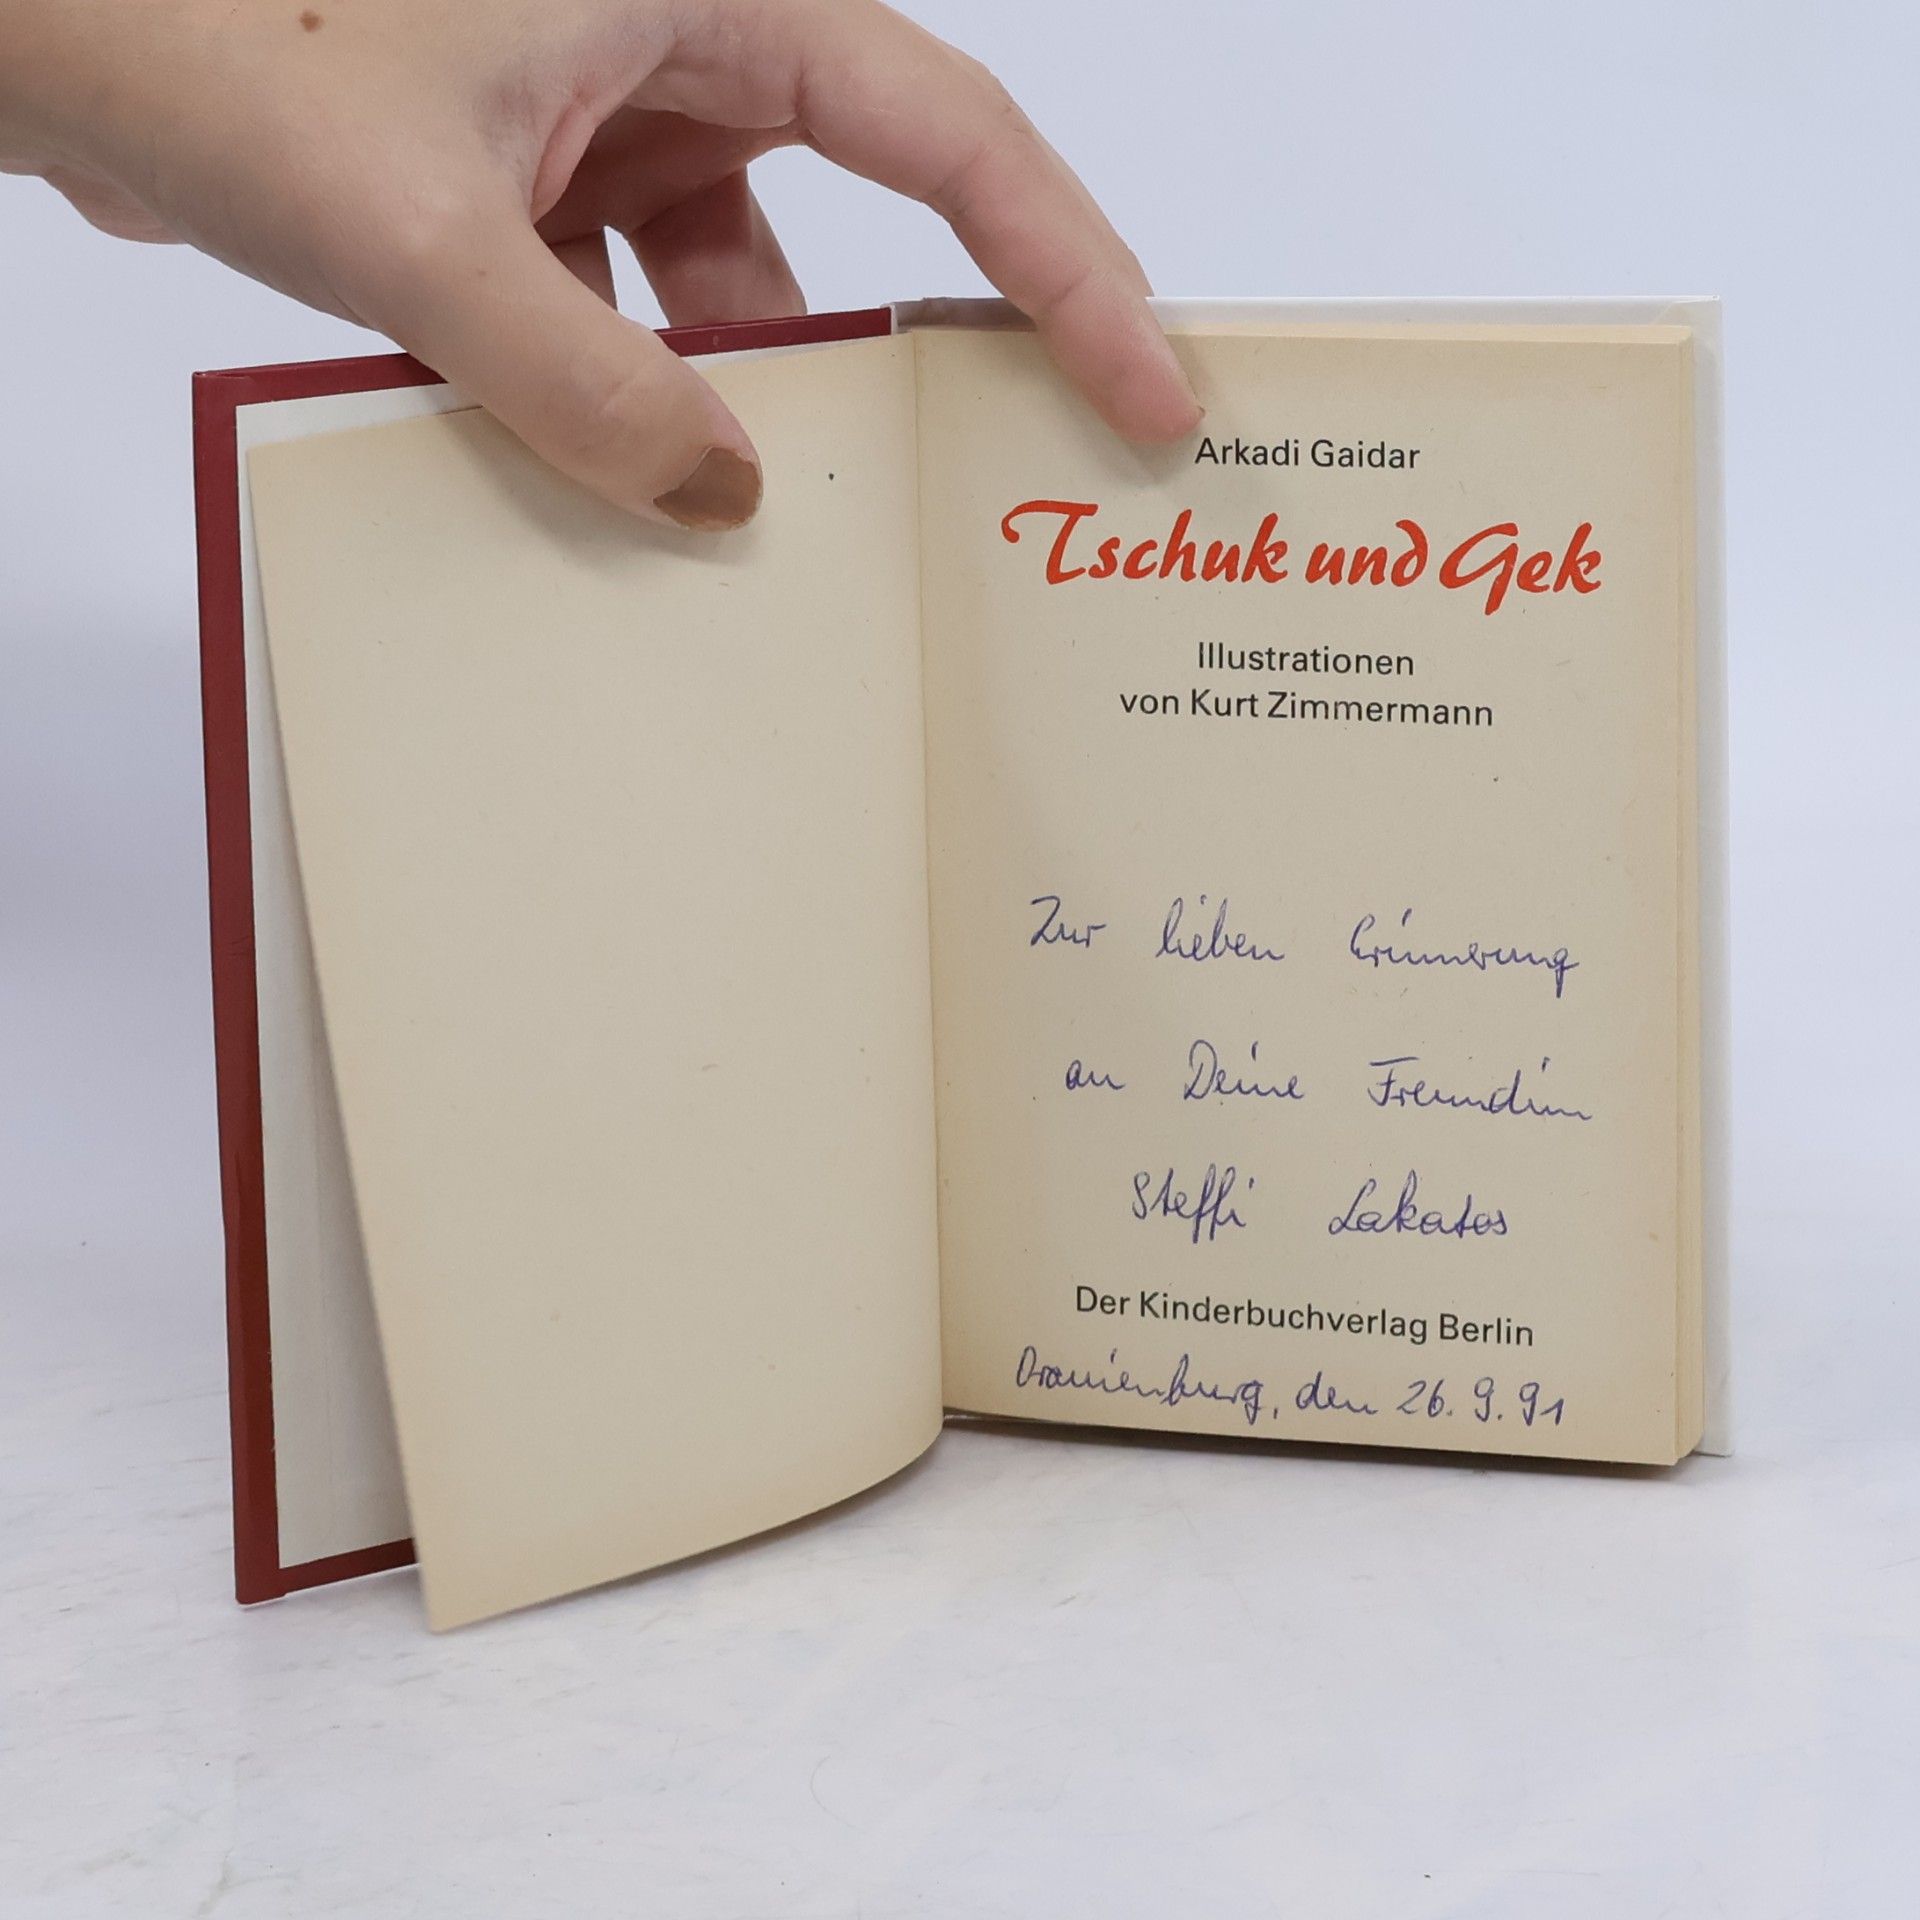 Arkadi Gaidar
Tschuk und Gek
Illustrationen
von Kurt Zimmermann
Zur lieben Erinnerung
an Deine Freundin
Steffi Lakatos
Der Kinderbuchverlag Berlin
Oranienburg, den 26.9.91